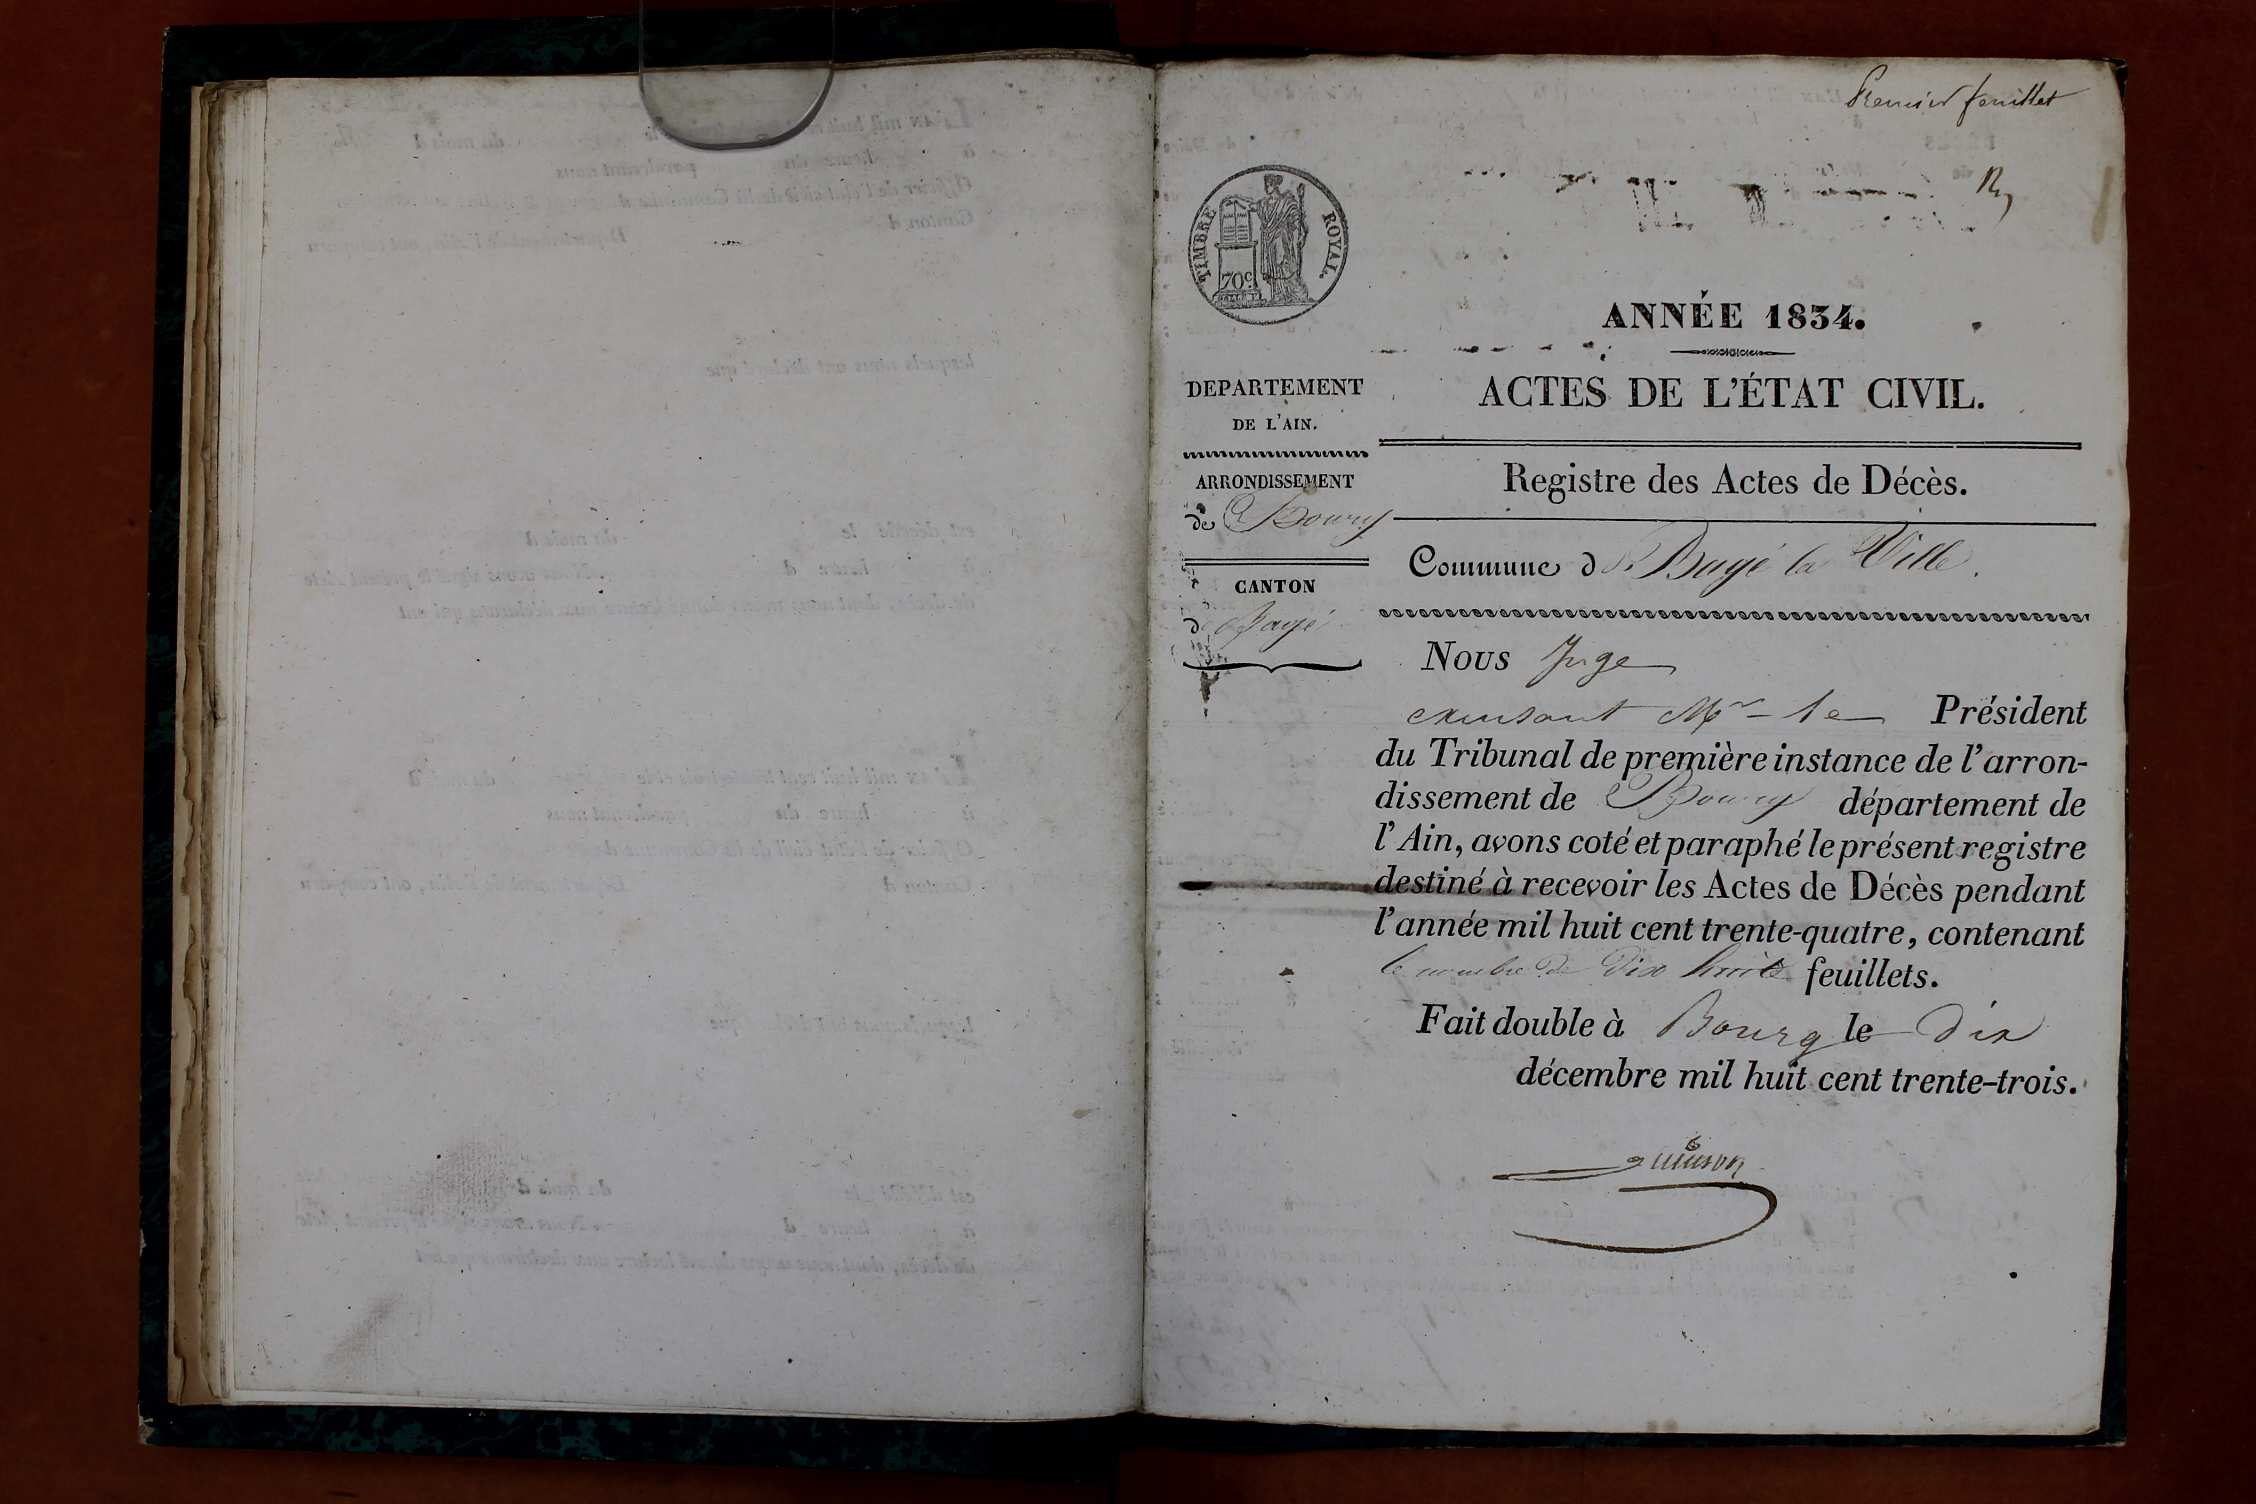 Premier feuillet
TIMBRE ROYAL.
70c
ANNÉE 1834.
DEPARTEMENT
DE L'AIN.
ACTES DE L'ÉTAT CIVIL.
ARRONDISSEMENT
de Bourg
Registre des Actes de Décès.
CANTON
de Bagé
Commune de Bagé la Ville.
Nous Juge
Mr le Président
du Tribunal de première instance de l'arron-
dissement de Bourg département de
l'Ain, avons coté et paraphé le présent registre
destiné à recevoir les Actes de Décès pendant
l'année mil huit cent trente-quatre, contenant
le nombre de Dix huit feuillets.
Fait double à Bourg le dix
décembre mil huit cent trente-trois.